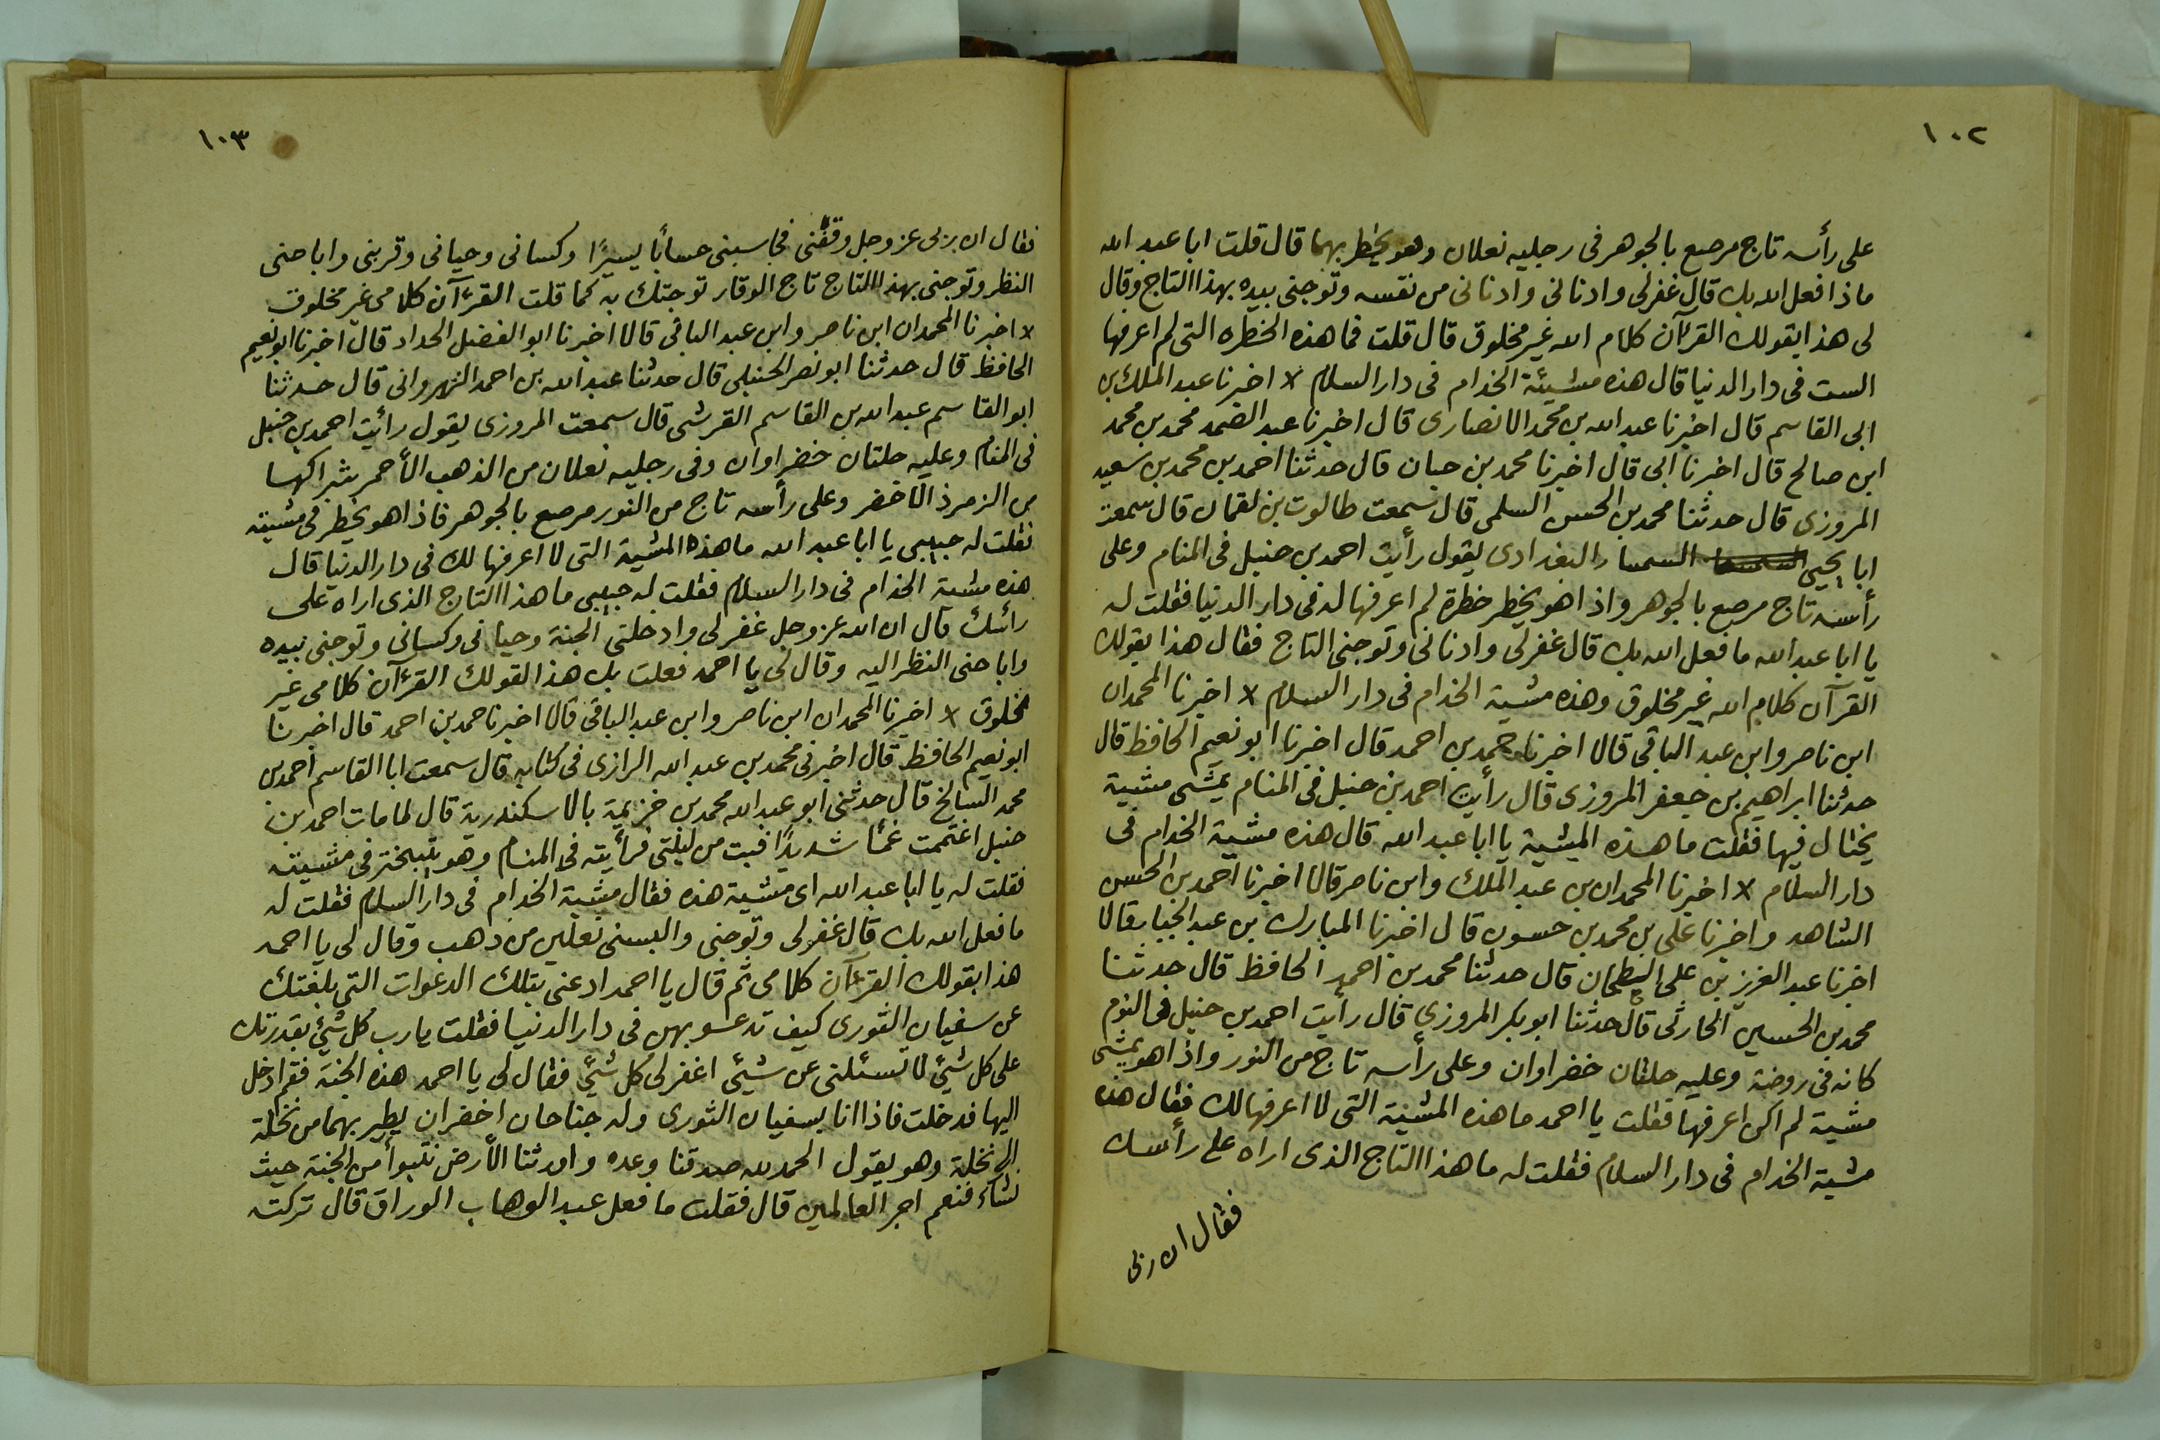 ١٠٢
على رأسه تاج مرصع بالجوهر فى رجليه نعلان وهو يخطر بهما قال قلت ابا عبد الله
ماذا فعل الله بك قال غفرلى وادنانى وادنانى من نفسه وتوجنى بيده بهذا التاج وقال
لى هذا بقولك القرآن كلام الله غير مخلوق قال قلت فما هذه الخطره التى لم اعرفها
الست فى دار الدنيا قال هذه مشيئة الخدام فى دار السلام × اخبرنا عبد الملك بن
ابى القاسم قال اخبرنا عبد الله بن محمد الانصارى قال اخبرنا عبد الصمد محمد بن محمد
ابن صالح قال اخبرنا ابى قال اخبرنا محمد بن حبان قال حدثنا احمد بن محمد بن سعيد
المروزى قال حدثنا محمد بن الحسن السلمى قال سمعت طالوت بن لقمان قال سمعت
ابا يحيى السمسار البغدادى يقول رأيت احمد بن حنبل فى المنام وعلى
رأسه تاج مرصع بالجوهر واذا هو يخطر خطرة لم اعرفها له فى دار الدنيا فقلت له
يا ابا عبد الله ما فعل الله بك قال غفرلى وادنانى وتوجنى التاج فقال هذا بقولك
القرآن كلام الله غير مخلوق وهذه مشية الخدام فى دار السلام × اخبرنا المحمدان
ابن ناصر وابن عبد الباقى قالا اخبرنا حمد بن احمد قال اخبرنا ابو نعيم الحافظ قال
حدثنا ابراهيم بن جعفر المروزى قال رأيت احمد بن حنبل فى المنام يمشى مشية
يختال فيها فقلت ما هذه المشية يا ابا عبد الله قال هذه مشية الخدام فى
دار السلام × اخبرنا المحمدان بن عبد الملك وابن ناصر قالا اخبرنا احمد بن الحسن
الشاهد واخبرنا على بن محمد بن حسون قال اخبرنا المبارك بن عبد الجبار قالا
اخبرنا عبد العزيز بن على قال حدثنا محمد بن احمد الحافظ قال حدثنا
محمد بن الحسين الحارثى قال حدثنا ابو بكر المروزى قال رأيت احمد بن حنبل فى النوم
كانه فى روضة وعليه حلتان خضراوان وعلى رأسه تاج من النور واذا هو يمشى
مشية لم اكن اعرفها فقلت يا احمد ما هذه المشية التى لا اعرفها لك فقال هذه
مشية الخدام فى دار السلام فقلت له ما هذا التاج الذى اراه على رأسك
فقال ان ربى
١٠٣
فقال ان ربى عز وجل وقفنى فحاسبنى حسابا يسيرا وكسانى وحيانى وقربنى واباحنى
النظر وتوجنى بهذا التاج تاج الوقار توجتك به كما قلت القرآن كلامى غير مخلوق
× اخبرنا المحمدان ابن ناصر وابن عبد الباقى قالا اخبرنا ابو الفضل الحداد قال اخبرنا ابو نعيم
الحافظ قال حدثنا ابو نصر الحنبلى قال حدثنا عبد الله بن احمد النهروانى قال حدثنا
ابو القاسم عبد الله بن القاسم القرشى قال سمعت المروزى يقول رأيت احمد بن حنبل
فى المنام وعليه حلتان خضراوان وفى رجليه نعلان من الذهب الأحمر بشراكهما
من الزمرذ الأخضر وعلى رأسه تاج من النور مرصع بالجوهر فاذا هو يخطر فى مشيته
فقلت له حبيبى يا ابا عبد الله ما هذه المشية التى لا اعرفها لك فى دار الدنيا قال
هذه مشية الخدام فى دار السلام فقلت له حبيبى ما هذا التاج الذى اراه على
رأسك قال ان الله عز وجل غفرلى وادخلنى الجنة وحيانى وكسانى وتوجنى بيده
واباحنى النظر اليه وقال لى يا احمد فعلت بك هذا لقولك القرآن كلامى غير
مخلوق × اخبرنا المحمدان ابن ناصر وابن عبد الباقى قالا اخبرنا حمد بن احمد قال اخبرنا
ابو نعيم الحافظ قال اخبرنى محمد بن عبد الله الرازى فى كتابه قال سمعت ابا القاسم احمد بن
محمد السايح قال حدثنى ابو عبد الله محمد بن خزيمة بالاسكندرية قال لما مات احمد بن
حنبل اغتممت غما شديدا فبت من ليلتى فرأيته فى المنام وهو يتبختر فى مشيته
فقلت له يا ابا عبد الله اى مشية هذه فقال مشية الخدام فى دار السلام فقلت له
ما فعل الله بك قال غفرلى وتوجنى والبسنى نعلين من ذهب وقال لى يا احمد
هذا بقولك القرآن كلامى ثم قال يا احمد ادعنى بتلك الدعوات التى بلغتك
عن سفيان الثورى كيف تدعو بهن فى دار الدنيا فقلت يا رب كل شيئ بقدرتك
على كل شيئ لا تسئلنى عن شيئ اغفرلى كل شيئ فقال لى يا احمد هذه الجنة فقم ادخل
اليها فدخلت فاذا انا بسفيان الثورى وله جناحان اخضران يطير بهما من نخلة
الى نخلة وهو يقول الحمد لله صدقنا وعده واورثنا الأرض نتبوأ من الجنة حيث
نشاء فنعم اجر العالمين قال فقلت ما فعل عبد الوهاب الوراق قال تركته